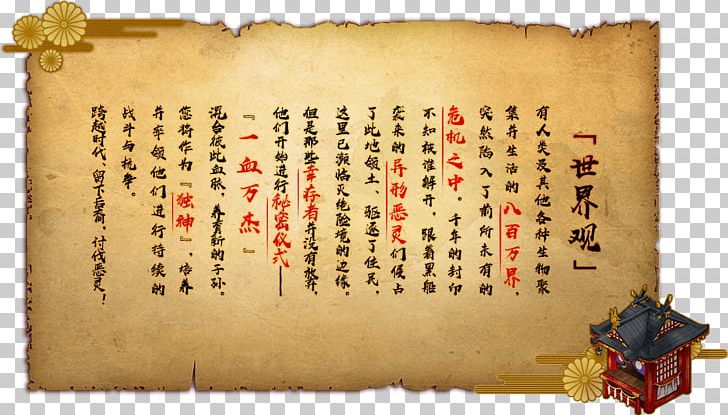 「世界观」
有人类及其他各种生物聚
集并生活的八百万界，
突然陷入了前所未有的
危机之中。千年的封印
不知被谁解开，跟着黑船
袭来的异形恶灵们侵占
了此地领土，驱逐了住民，
这里已濒临灭绝险境的边缘。
但是那些幸存者并没有放弃，
他们开始进行秘密仪式——
『一血万杰』
混合彼此血脉、养育新的子孙。
您将作为『独神』，培养
并率领他们进行持续的
战斗与抗争。
跨越时代、留下后裔，讨伐恶灵！